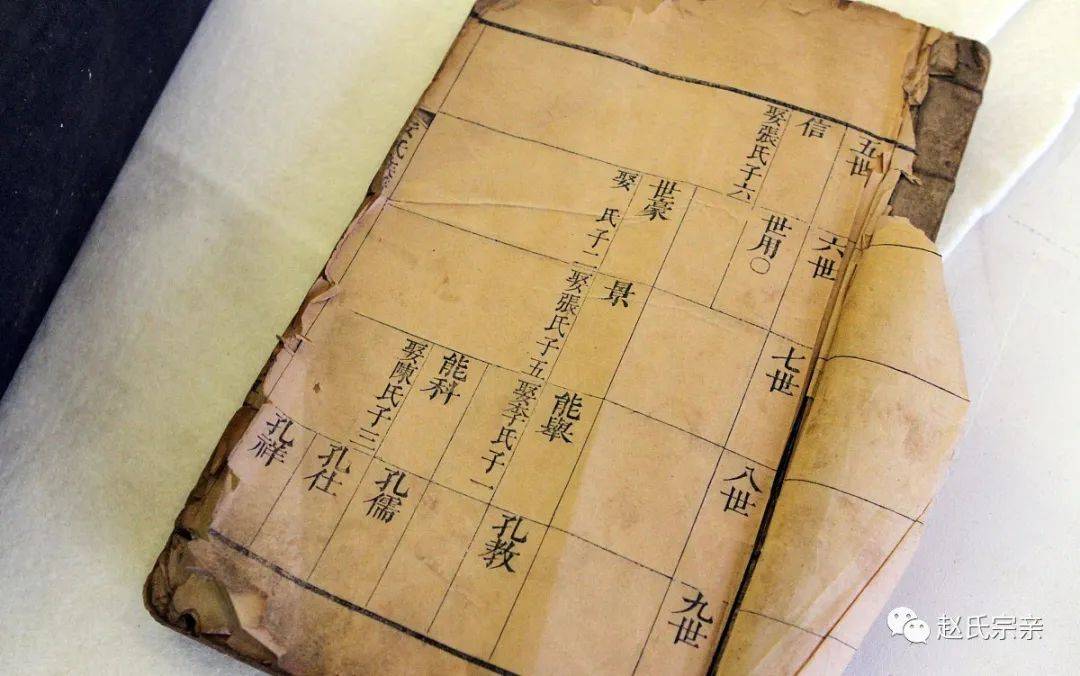 五世
六世
七世
八世
九世
信
娶張氏子六
世用〇
世豪
娶 氏子二
景
娶張氏子五
能舉
娶李氏子一
孔教
能科
娶陳氏子三
孔儒
孔仕
孔祥
赵氏宗亲